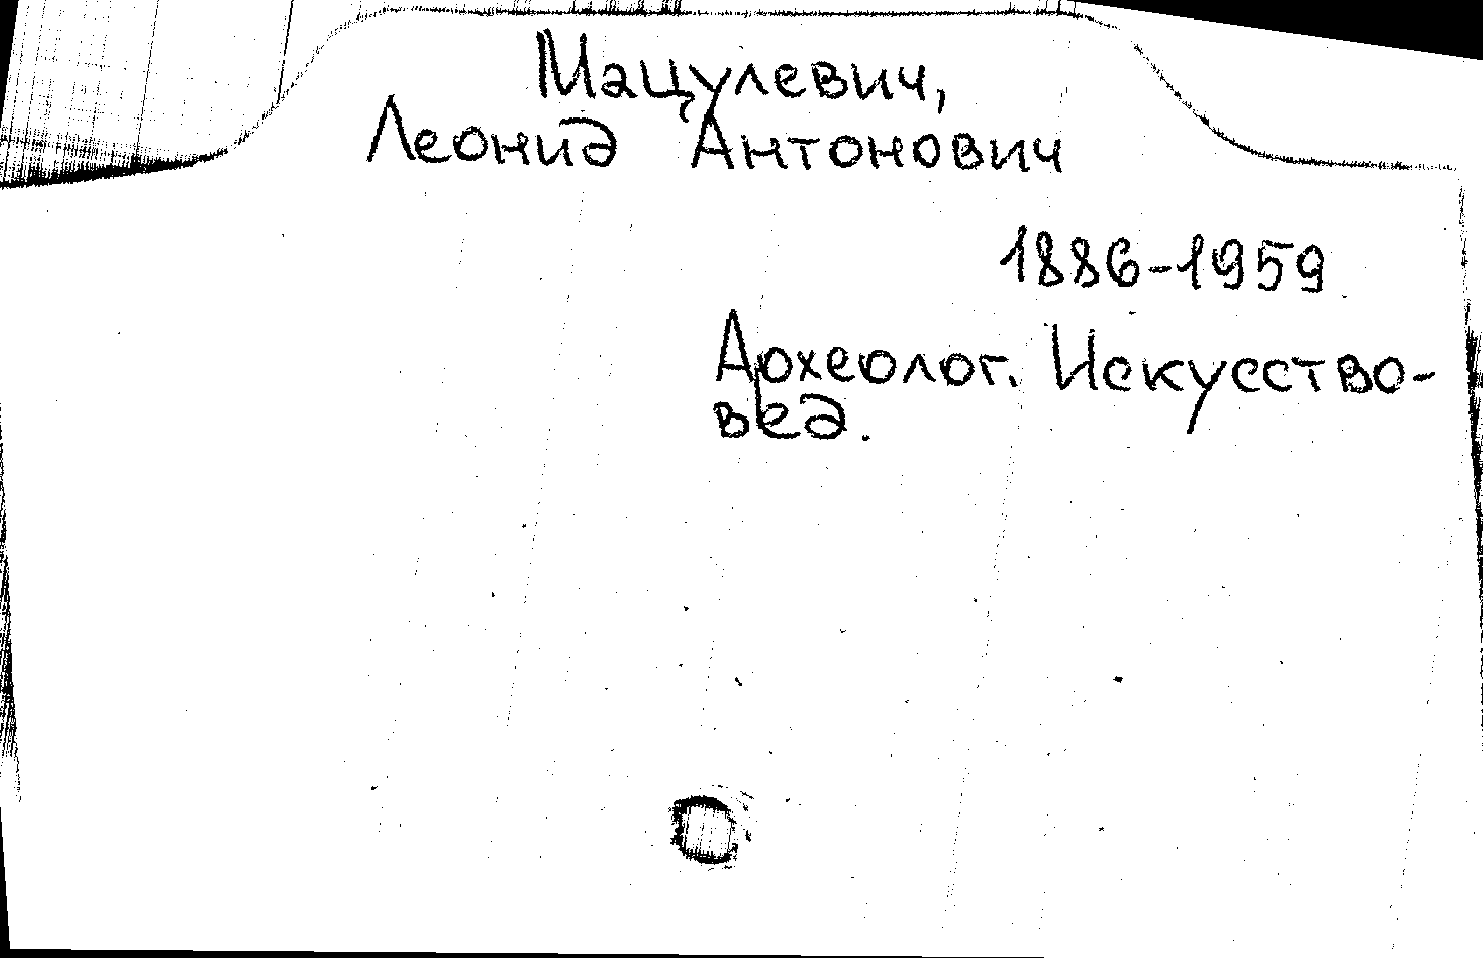 Мацулевич,
Леонид Антонович
1886-1959
Археолог. Искусство-
вед.